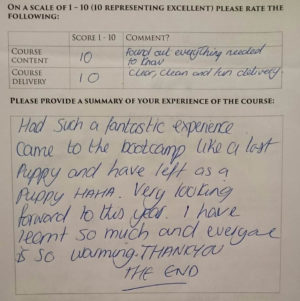 ON A SCALE OF 1 - 10 (10 REPRESENTING EXCELLENT) PLEASE RATE THE
FOLLOWING:
SCORE 1 - 10 COMMENT?
COURSE CONTENT 10 found out everything needed to know
COURSE DELIVERY 10 clear, clean and fun delivery.
PLEASE PROVIDE A SUMMARY OF YOUR EXPERIENCE OF THE COURSE:
Had such a fantastic experience
came to the bootcamp like a lost
puppy and have left as a
puppy HAHA. Very looking
forward to this year. I have
learnt so much and everyone
is so warming. THANKYOU
THE END